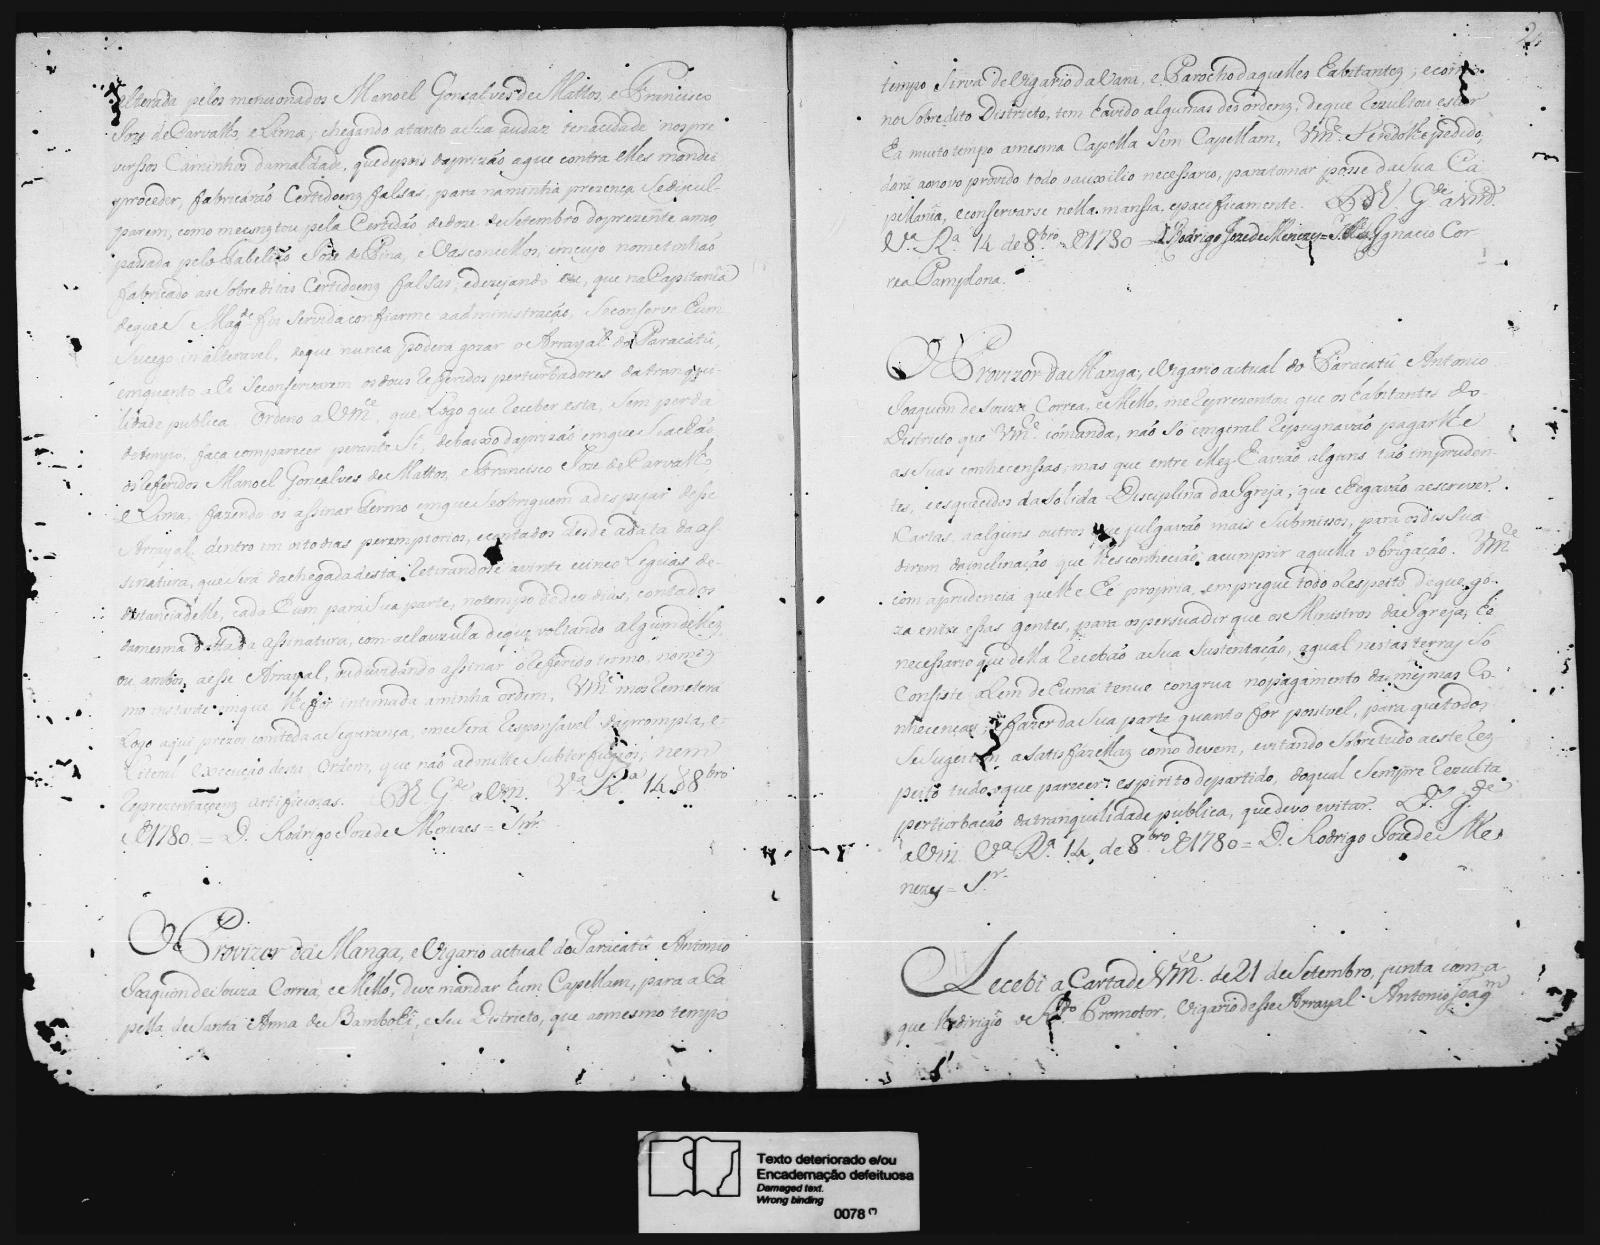 alterada pelos mencionados Manoel Gonsalves de Mattos, e Francisco
Joze de Carvalho, e Lima; chegando a tanto a sua audaz tenacidade nos pre
verssos Caminhos da maldade, que depois da prizão a que contra elles mandei
proceder, fabricárão Certidoens falsas, para na minha prezença se discul-
parem, como me constou pela Certidão de doze de Setembro do prezente anno,
passada pelo Tabelião Joze de Pina, e Vasconcellos, em cujo nome tinhão
fabricado as Sobreditas Certidoens falsas; e dezejando eu, que na Capitania
de que S. Mag.de foi servida confiarme a administração, Se conserve hum
Socego inalteravel, de que nunca poderá gozar o Arrayal do Paracatû,
emquanto ali Se conservarem os dous referidos perturbadores da tranqui-
lidade publica. Ordeno a Vm.ce que, logo que receber esta, Sem perda
de tempo, faça comparecer perante Si, debaixo da prizão em que Se achão
os referidos Manoel Gonçalves de Mattos, e Francisco Joze de Carvalho,
e Lima, fazendo os assinar termo em que Se obriguem a despejar desse
Arrayal, dentro em oito dias peremptorios, e contados desde a data da as-
sinatura, que Será da chegada desta, retirandose a vinte e cinco legoas de
distancia delle, cada hum para Sua parte, no tempo de dez dias, contados
da mesma data da assinatura, com a clauzula de que, voltando algum delles,
ou ambos, a esse Arrayal, ou duvidando assinar o referido termo, no mes
mo instante em que lhe for intimada a minha ordem, Vm.ce mos remeterá
logo aqui prezos com toda a Segurança, e me será responsavel da prompta, e
Literal execução desta Ordem, que não admitte Subterfugios, nem
reprezentaçoens artificiozas. D. G.de a Vm. V.a R.a 14 de 8bro
de 1780 = D. Rodrigo Joze de Menezes = Snr.
O Provizor da Manga, e Vigario actual do Paracatû Antonio
Joaquim de Souza Correa, e Mello, deve mandar hum Capellam, para a Ca
pella de Santa Anna do Bambohî, e Seu Districto, que ao mesmo tempo
24
tempo Sirva de Vigario da Vara, e Parocho daquelles habitantes; e como
no Sobredito Districto, tem havido algumas desordens, de que rezultou estar
há muito tempo a mesma Capella Sem Capellam, Vm.ce Sendolhe pedido,
dará ao novo provido todo o auxilio necessario, para tomar posse da Sua Ca
pellania, e conservarse nella mansa, e pacificamente. D. G.de a Vm.
V.a R.a 14 de 8bro de 1780 = D. Rodrigo Joze de Menezes = Ignacio Cor
rea Pamplona.
O Provizor da Manga, e Vigario actual do Paracatû Antonio
Joaquim de Souza Correa, e Mello, me reprezentou que os habitantes do
Districto que Vm.ce comanda, não Só em geral repugnavão pagarlhe
as Suas conhecenssas, mas que entre elles havião alguns tão impruden-
tes, e esquecidos da Solida Disciplina da Igreja, que chegavão a escrever
Cartas, a alguns outros que julgavão mais Submissos, para os dissua
direm da inclinação que lhes conhecião, a cumprir aquella obrigação. Vm.ce
com a prudencia que lhe he propria, empregue todo o respeito, de que go-
za entre essas gentes, para os persuadir que os Ministros da Igreja, hé
necessario que della recebão a Sua Sustentação, a qual nestas terras Só
Consiste alem de huma tenue congrua no pagamento das mesmas Co-
nhecenças, e fazer da Sua parte quanto for possivel, para que todos
Se Sugeitem a Satisfazellas como devem, evitando Sobretudo a este res-
peito tudo o que parecer espirito de partido, do qual Sempre rezulta
perturbação da tranquilidade publica, que devo evitar. D. G.de
a Vm. V.a R.a 14 de 8bro de 1780 = D. Rodrigo Joze de Me
nezes = S.r
Recebi a Carta de Vm.ce de 21 de Setembro, junta com a
que lhe dirigio o R.do Promotor, Vigario desse Arrayal Antonio Joaq.m
Texto deteriorado e/ou
Encadernação defeituosa
Damaged text.
Wrong binding
0078